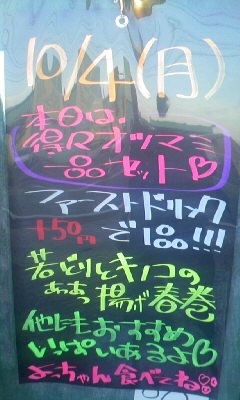 10/4(月)
本日は、
得々オツマミ
一品セット♡
ファーストドリンク
+50円で1品!!!
若どりとキノコの
あつあつ揚げ春巻
他にもおすすめ
いっぱいあるよ♡
よっちゃん食べてね